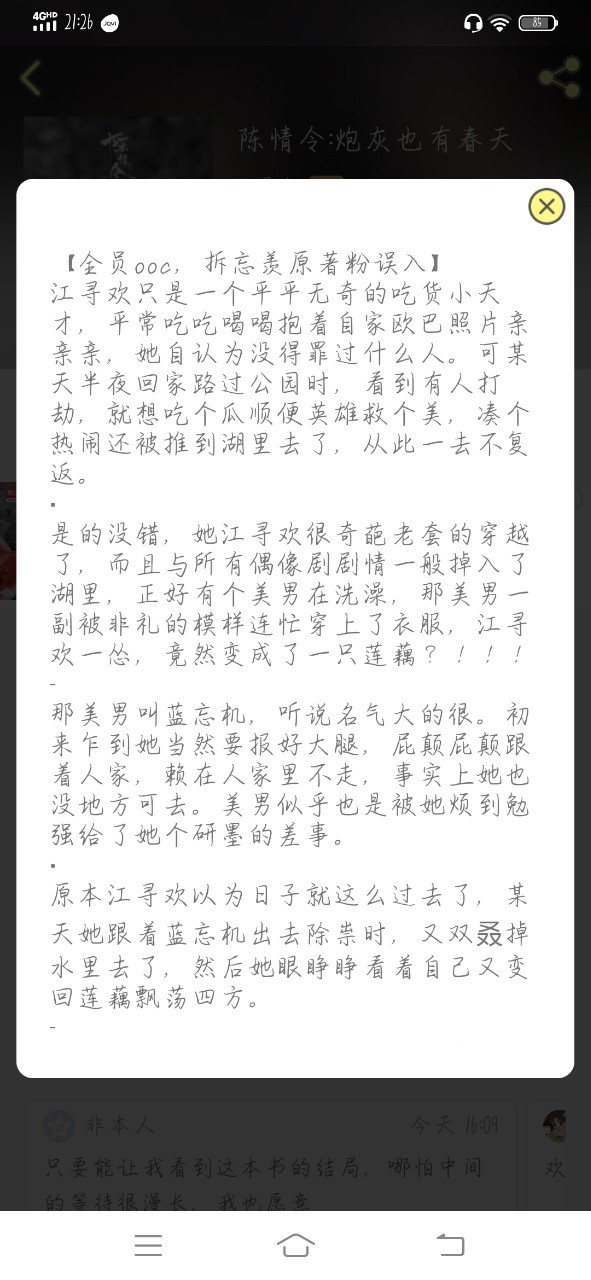 4GHD 21:26 Jovi 85
陈情令:炮灰也有春天
【全员ooc，拆忘羡原著粉误入】
江寻欢只是一个平平无奇的吃货小天
才，平常吃吃喝喝抱着自家欧巴照片亲
亲亲，她自认为没得罪过什么人。可某
天半夜回家路过公园时，看到有人打
劫，就想吃个瓜顺便英雄救个美，凑个
热闹还被推到湖里去了，从此一去不复
返。
.
是的没错，她江寻欢很奇葩老套的穿越
了，而且与所有偶像剧剧情一般掉入了
湖里，正好有个美男在洗澡，那美男一
副被非礼的模样连忙穿上了衣服，江寻
欢一怂，竟然变成了一只莲藕？！！！
-
那美男叫蓝忘机，听说名气大的很。初
来乍到她当然要报好大腿，屁颠屁颠跟
着人家，赖在人家里不走，事实上她也
没地方可去。美男似乎也是被她烦到勉
强给了她个研墨的差事。
.
原本江寻欢以为日子就这么过去了，某
天她跟着蓝忘机出去除祟时，又双叒掉
水里去了，然后她眼睁睁看着自己又变
回莲藕飘荡四方。
-
非本人 今天 16:09
只要能让我看到这本书的结局，哪怕中间 欢
的等待很漫长，我也愿意